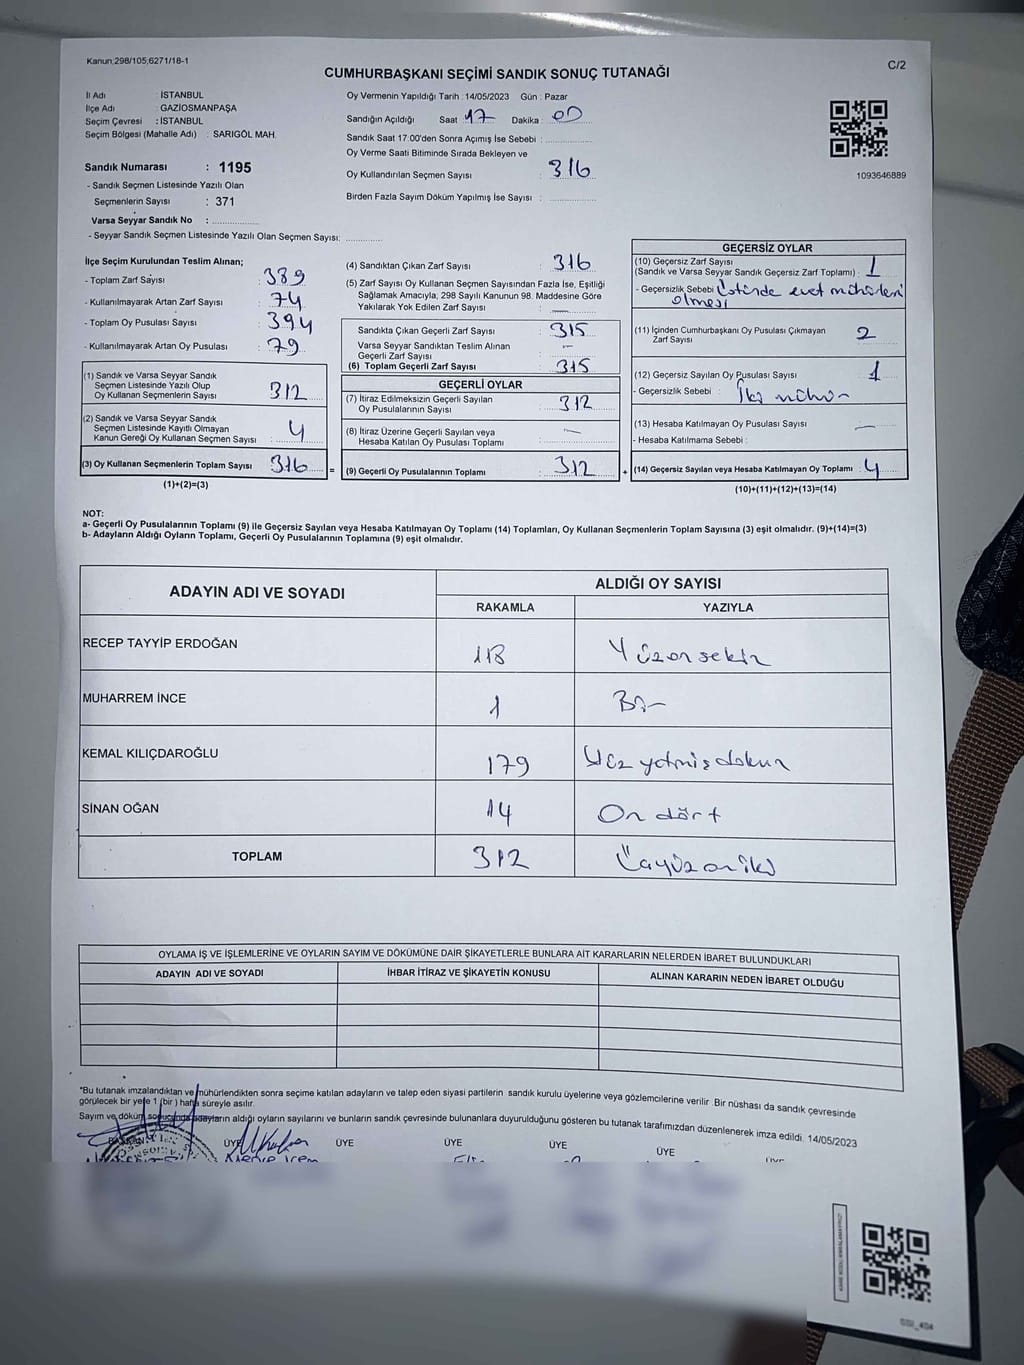 Kanun 298/105,6271/18-1
C/2
CUMHURBAŞKANI SEÇİMİ SANDIK SONUÇ TUTANAĞI
İl Adı : İSTANBUL
İlçe Adı : GAZİOSMANPAŞA
Seçim Çevresi : İSTANBUL
Seçim Bölgesi (Mahalle Adı) : SARIGÖL MAH.
Sandık Numarası : 1195
- Sandık Seçmen Listesinde Yazılı Olan
Seçmenlerin Sayısı : 371
Varsa Seyyar Sandık No :
- Seyyar Sandık Seçmen Listesinde Yazılı Olan Seçmen Sayısı:
Oy Vermenin Yapıldığı Tarih : 14/05/2023 Gün : Pazar
Sandığın Açıldığı Saat 17 Dakika : 00
Sandık Saat 17:00'den Sonra Açımış İse Sebebi :
Oy Verme Saati Bitiminde Sırada Bekleyen ve
Oy Kullandırılan Seçmen Sayısı : 316
Birden Fazla Sayım Döküm Yapılmış İse Sayısı :
1093646889
İlçe Seçim Kurulundan Teslim Alınan;
- Toplam Zarf Sayısı : 389
- Kullanılmayarak Artan Zarf Sayısı : 74
- Toplam Oy Pusulası Sayısı : 394
- Kullanılmayarak Artan Oy Pusulası : 79
(1) Sandık ve Varsa Seyyar Sandık
Seçmen Listesinde Yazılı Olup
Oy Kullanan Seçmenlerin Sayısı : 312
(2) Sandık ve Varsa Seyyar Sandık
Seçmen Listesinde Kayıtlı Olmayan
Kanun Gereği Oy Kullanan Seçmen Sayısı : 4
(3) Oy Kullanan Seçmenlerin Toplam Sayısı : 316 =
(1)+(2)=(3)
(4) Sandıktan Çıkan Zarf Sayısı : 316
(5) Zarf Sayısı Oy Kullanan Seçmen Sayısından Fazla İse, Eşitliği
Sağlamak Amacıyla, 298 Sayılı Kanunun 98. Maddesine Göre
Yakılarak Yok Edilen Zarf Sayısı : —
Sandıkta Çıkan Geçerli Zarf Sayısı : 315
Varsa Seyyar Sandıktan Teslim Alınan
Geçerli Zarf Sayısı : —
(6) Toplam Geçerli Zarf Sayısı : 315
GEÇERLİ OYLAR
(7) İtiraz Edilmeksizin Geçerli Sayılan
Oy Pusulalarının Sayısı : 312
(8) İtiraz Üzerine Geçerli Sayılan veya
Hesaba Katılan Oy Pusulası Toplamı : —
(9) Geçerli Oy Pusulalarının Toplamı : 312 +
GEÇERSİZ OYLAR
(10) Geçersiz Zarf Sayısı
(Sandık ve Varsa Seyyar Sandık Geçersiz Zarf Toplamı) : 1
- Geçersizlik Sebebi : Üstünde evet mühürleri
olmesi
(11) İçinden Cumhurbaşkanı Oy Pusulası Çıkmayan
Zarf Sayısı : 2
(12) Geçersiz Sayılan Oy Pusulası Sayısı : 1
- Geçersizlik Sebebi : İki mühür
(13) Hesaba Katılmayan Oy Pusulası Sayısı : —
- Hesaba Katılmama Sebebi :
(14) Geçersiz Sayılan veya Hesaba Katılmayan Oy Toplamı : 4
(10)+(11)+(12)+(13)=(14)
NOT:
a- Geçerli Oy Pusulalarının Toplamı (9) ile Geçersiz Sayılan veya Hesaba Katılmayan Oy Toplamı (14) Toplamları, Oy Kullanan Seçmenlerin Toplam Sayısına (3) eşit olmalıdır. (9)+(14)=(3)
b- Adayların Aldığı Oyların Toplamı, Geçerli Oy Pusulalarının Toplamına (9) eşit olmalıdır.
ADAYIN ADI VE SOYADI
ALDIĞI OY SAYISI
RAKAMLA YAZIYLA
RECEP TAYYİP ERDOĞAN 118 Yüzonsekiz
MUHARREM İNCE 1 Bir
KEMAL KILIÇDAROĞLU 179 Yüz yetmiş dokuz
SİNAN OĞAN 14 On dört
TOPLAM 312 Üçyüzoniki
OYLAMA İŞ VE İŞLEMLERİNE VE OYLARIN SAYIM VE DÖKÜMÜNE DAİR ŞİKAYETLERLE BUNLARA AİT KARARLARIN NELERDEN İBARET BULUNDUKLARI
ADAYIN ADI VE SOYADI İHBAR İTİRAZ VE ŞİKAYETİN KONUSU ALINAN KARARIN NEDEN İBARET OLDUĞU
*Bu tutanak imzalandıktan ve mühürlendikten sonra seçime katılan adayların ve talep eden siyasi partilerin sandık kurulu üyelerine veya gözlemcilerine verilir Bir nüshası da sandık çevresinde
görülecek bir yere 1 (bir) hafta süreyle asılır.
Sayım ve döküm sonucunda adayların aldığı oyların sayılarını ve bunların sandık çevresinde bulunanlara duyurulduğunu gösteren bu tutanak tarafımızdan düzenlenerek imza edildi. 14/05/2023
ÜYE ÜYE ÜYE ÜYE ÜYE
SSI_404